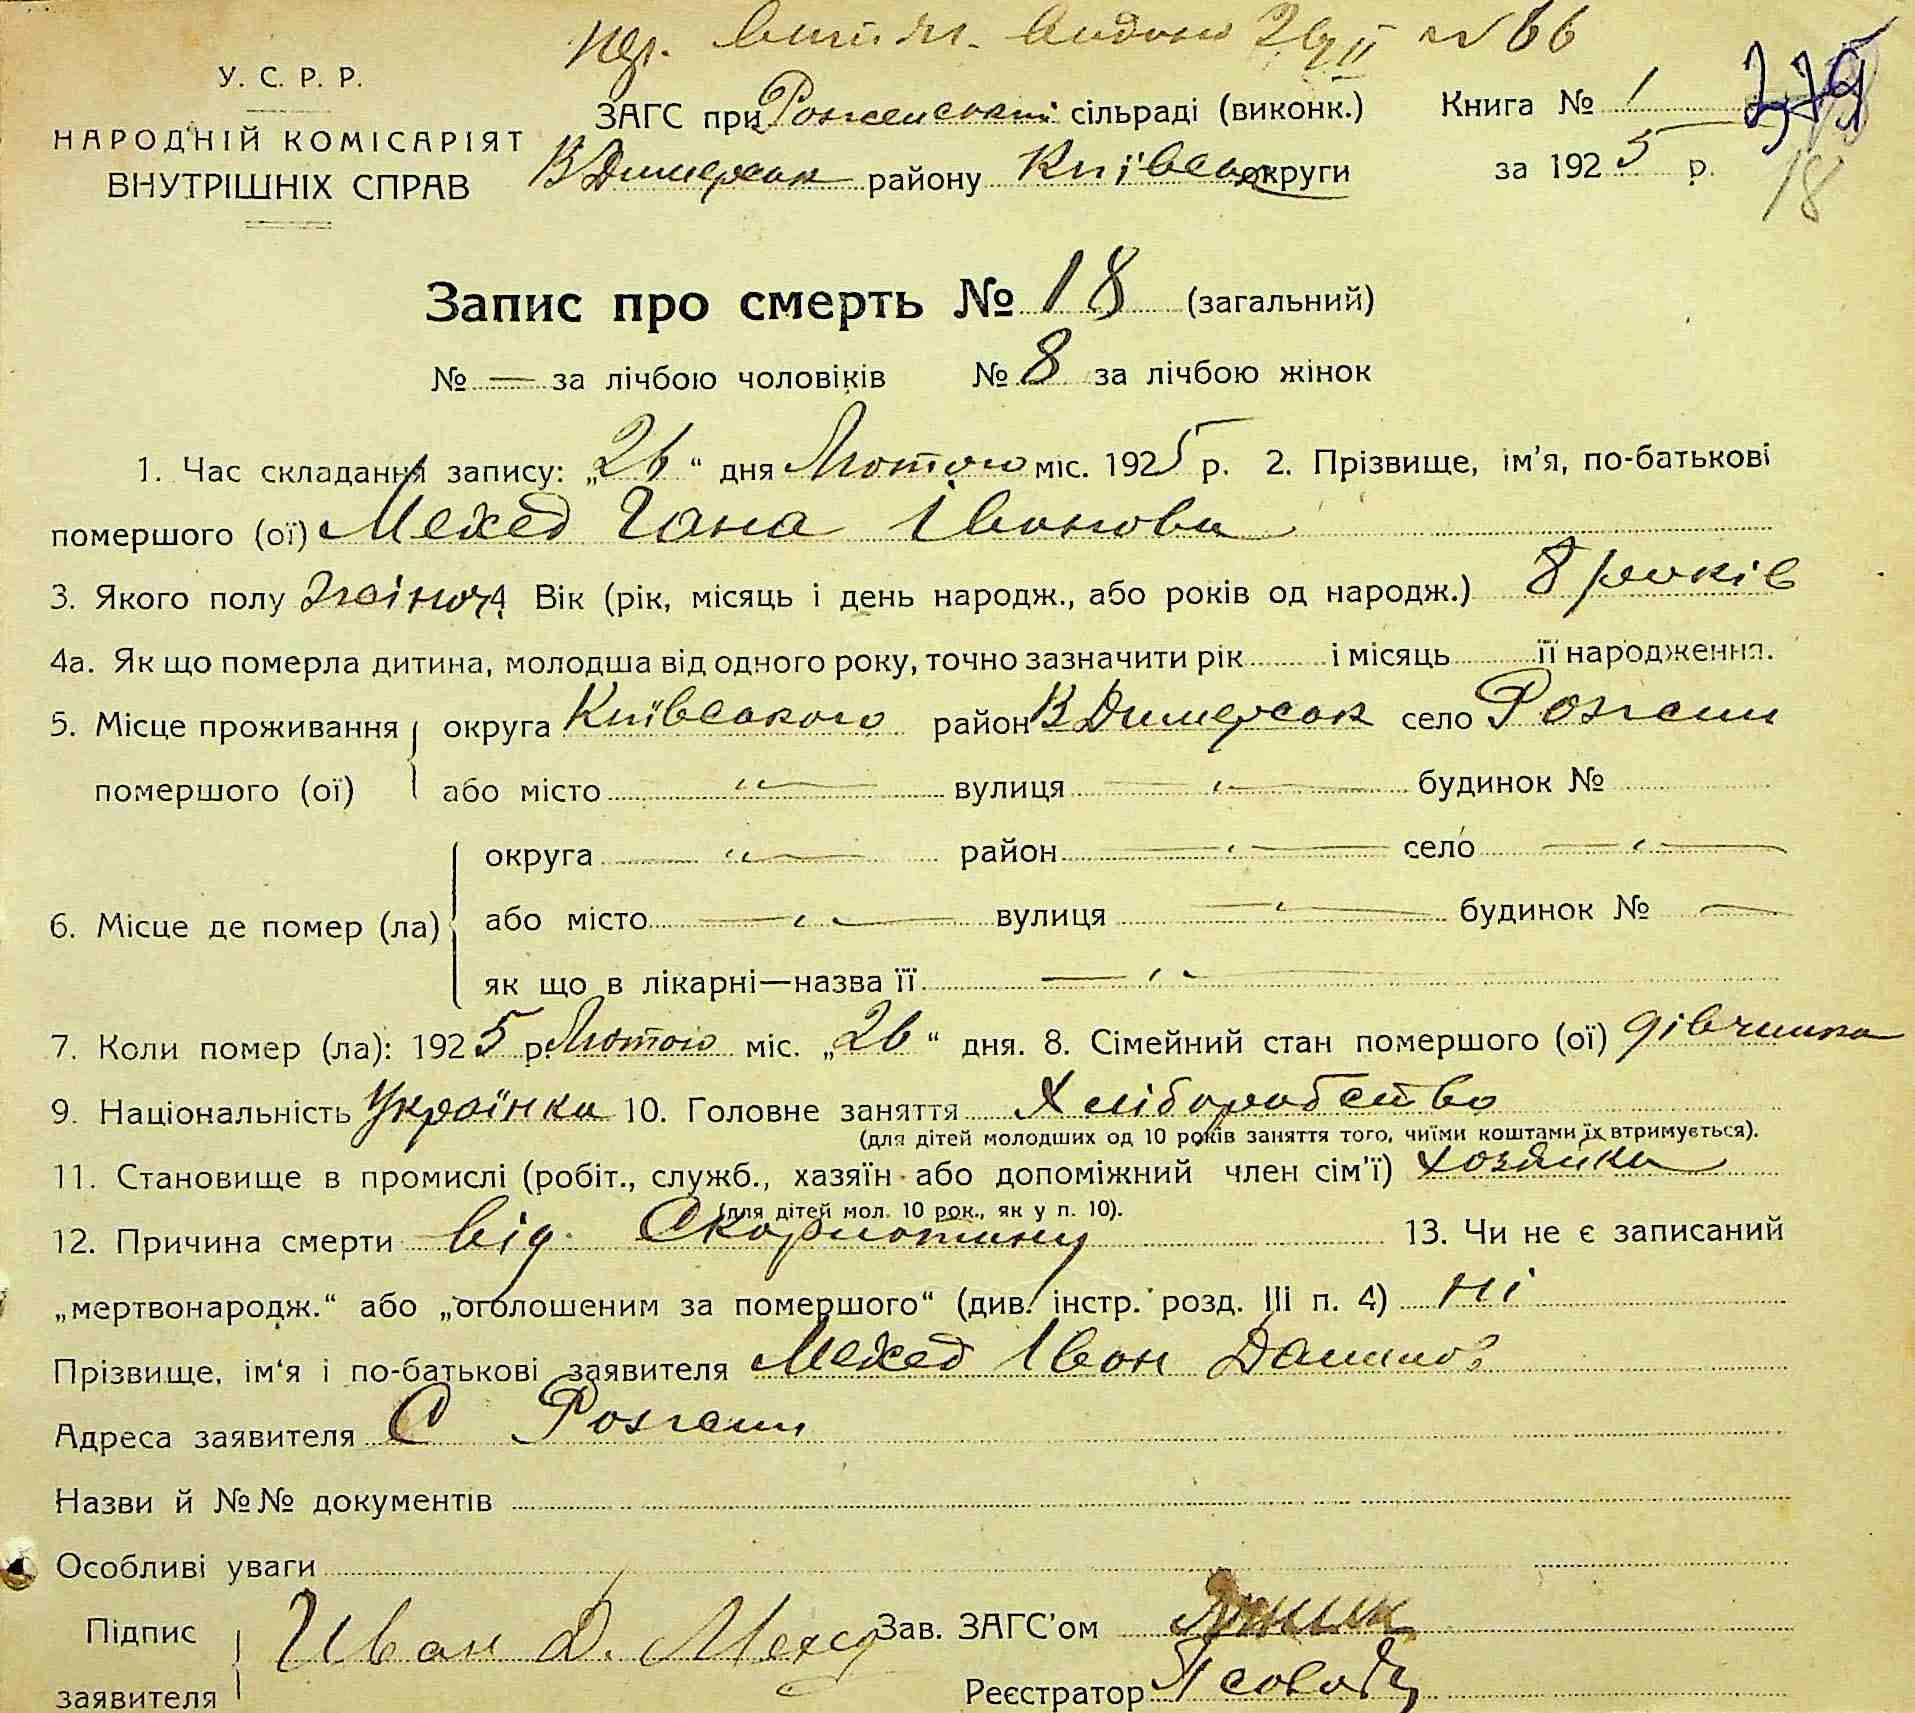 У. С. Р. Р.
НАРОДНІЙ КОМІСАРІЯТ
ВНУТРІШНІХ СПРАВ
№ 66
ЗАГС при Роженській сільраді (виконк.)
В Димерськ району Київської округи
Книга № 1
за 1925 р.
18
Запис про смерть № 18 (загальний)
№ — за лічбою чоловіків № 8 за лічбою жінок
1. Час складання запису: „26“ дня Лютого міс. 1925 р. 2. Прізвище, ім'я, по-батькові
помершого (ої) Мехед Гана Іванова
3. Якого полу Жіноч. Вік (рік, місяць і день народж., або років од народж.) 8 років
4а. Як що померла дитина, молодша від одного року, точно зазначити рік і місяць її народження.
5. Місце проживання округа Київського район В Димерськ село Рожени
помершого (ої) або місто —„— вулиця —„— будинок №
округа —„— район —„— село —„—
6. Місце де помер (ла) або місто —„— вулиця —„— будинок № —
як що в лікарні—назва її —„—
7. Коли помер (ла): 1925 р. Лютого міс. „26“ дня. 8. Сімейний стан помершого (ої) дівчинка
9. Національність Українка 10. Головне заняття Хліборобство
(для дітей молодших од 10 років заняття того, чиїми коштами їх втримується).
11. Становище в промислі (робіт., служб., хазяїн або допоміжний член сім'ї) хозяйка
(для дітей мол. 10 рок., як у п. 10).
12. Причина смерти від Скорлотину 13. Чи не є записаний
„мертвонародж.“ або „оголошеним за помершого“ (див. інстр. розд. III п. 4) ні
Прізвище, ім'я і по-батькові заявителя Мехед Іван Данилов
Адреса заявителя С Рожени
Назви й №№ документів
Особливі уваги
Підпис заявителя Иван Д. Мехед Зав. ЗАГС'ом
Реєстратор